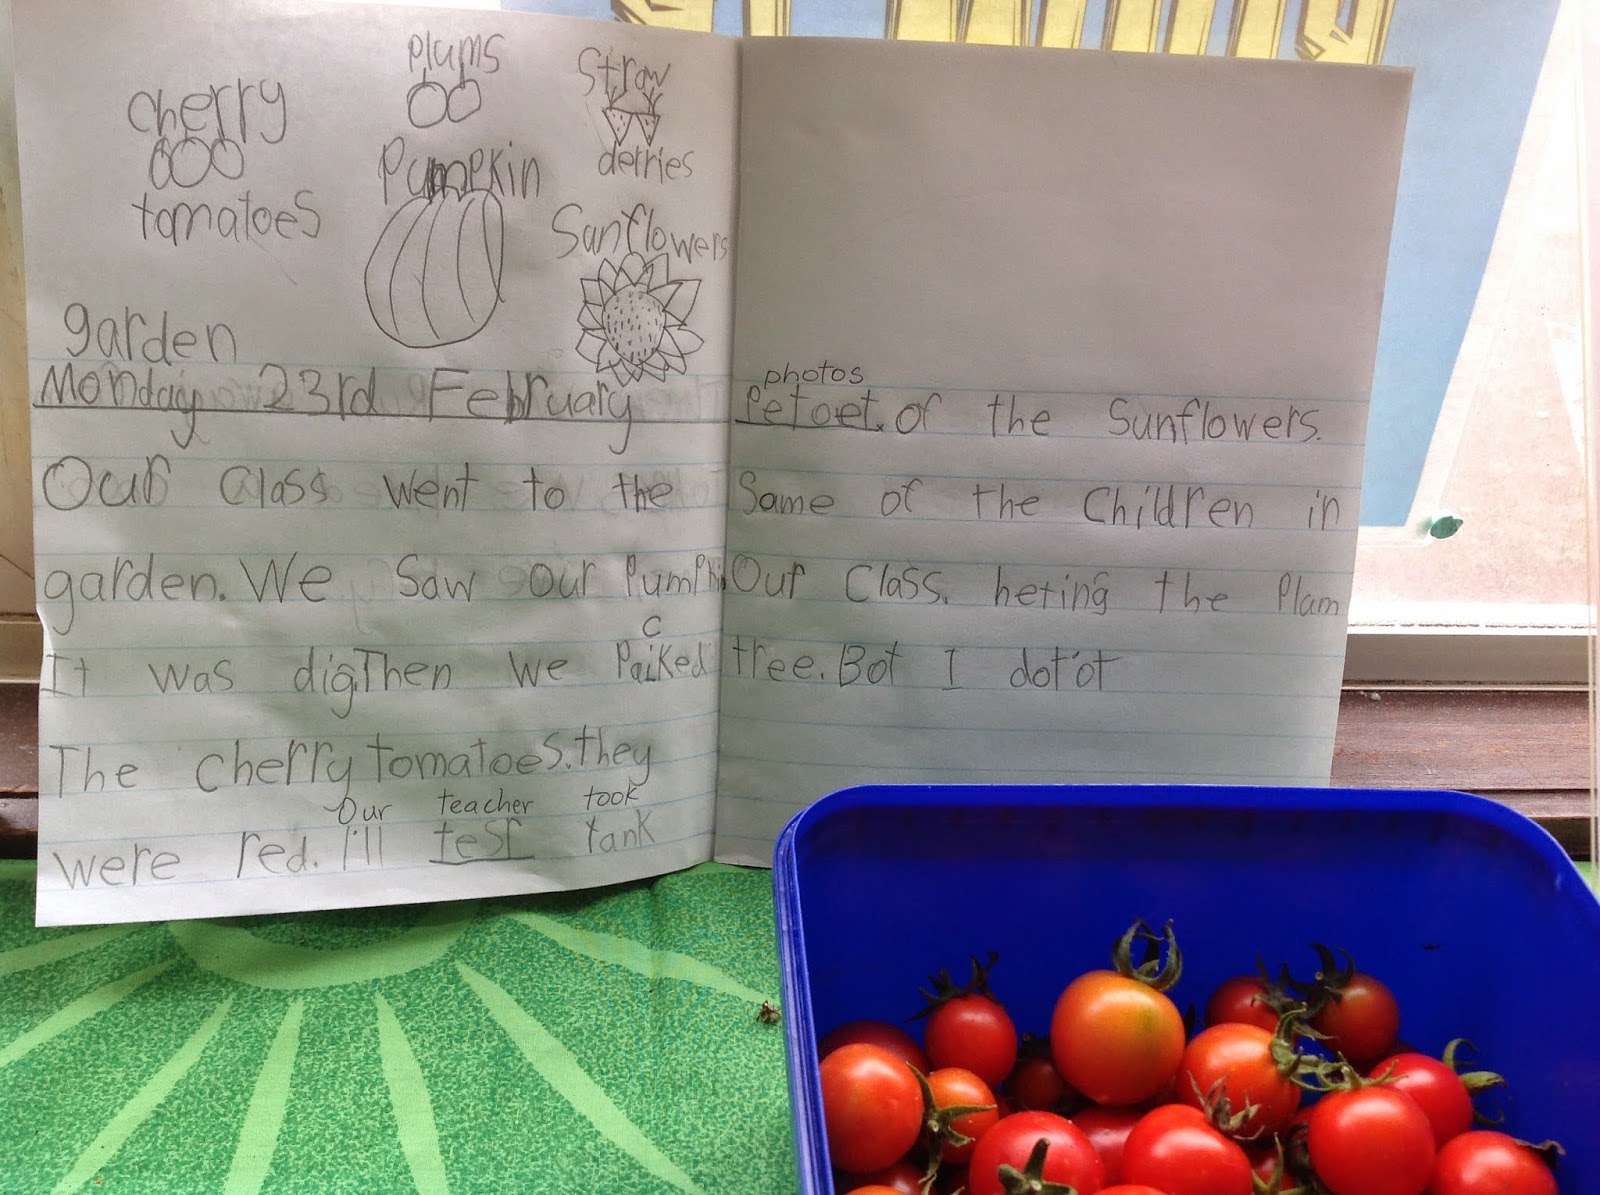 plums
Straw
cherry
Pumpkin
derries
tomatoes
Sunflowers
garden
Monday 23rd February
Our Class went to the
garden. We Saw our Pumpkin
c
It was dig. Then we Paiked
The cherry tomatoes. they
Our teacher took
were red. I'll tesr tank
photos
Petoet. of the Sunflowers.
Same of the Children in
Our Class. heting the Plam
tree. Bot I dot'ot